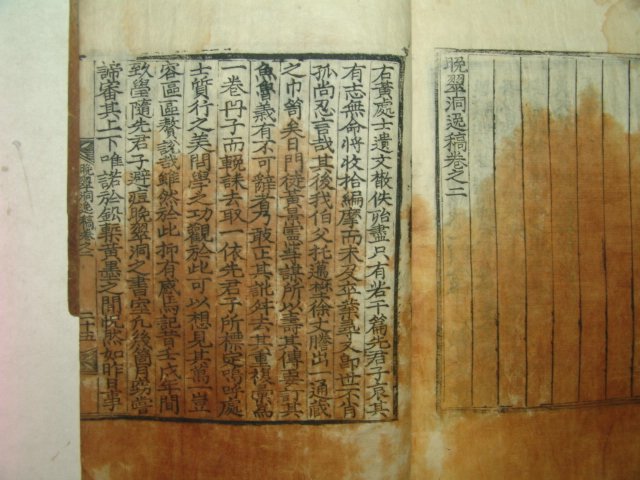 晚翠洞逸稿卷之二
右黃處士遺文散佚殆盡只有若干篇先君子哀其
有志無命將收拾編摩而未及卒業孤又卽世不肖
孤尚忍言哉其後我伯父托邁樊徐丈騰出一通藏
之巾笥矣日門徒黃景雲等諱所以壽其傳要訂其
魚魯義有不可辭者乃敢正其訛件去其重複彙爲
一卷丹子而輗誄去取一依先君子所標定嗚呼處
士質行之美問學之功觀於此可以想見其萬豈
容區區贅說哉雖然於此抑有感焉記昔壬戌年間
致學隨先君子避痘晚翠洞之書室凡後箇月
諦審其上下唯諾於鈆槧黃墨之間怳然如昨日事
晚翠洞逸稿卷之二
二十五